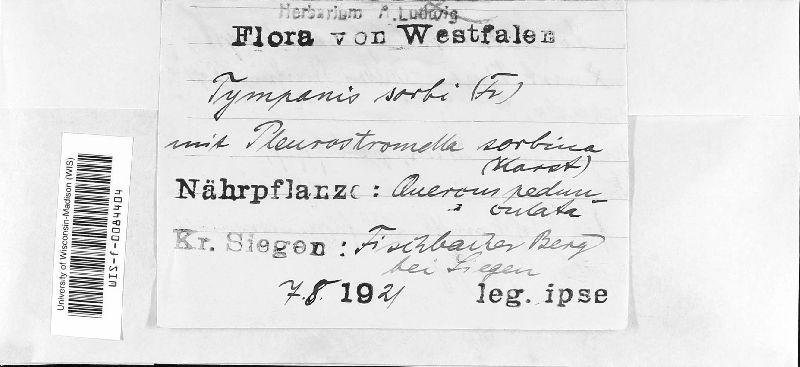 Herbarium A. Ludwig
Flora von Westfalen
Tympanis sorbi (Fr)
mit Pleurostromella sorbina
(Karst)
Nährpflanze: Quercus pedun-
culata
Kr. Siegen: Fischbacher Berg
bei Siegen
7.8. 1921 leg. ipse
University of Wisconsin-Madison (WIS)
WIS-f-0084404